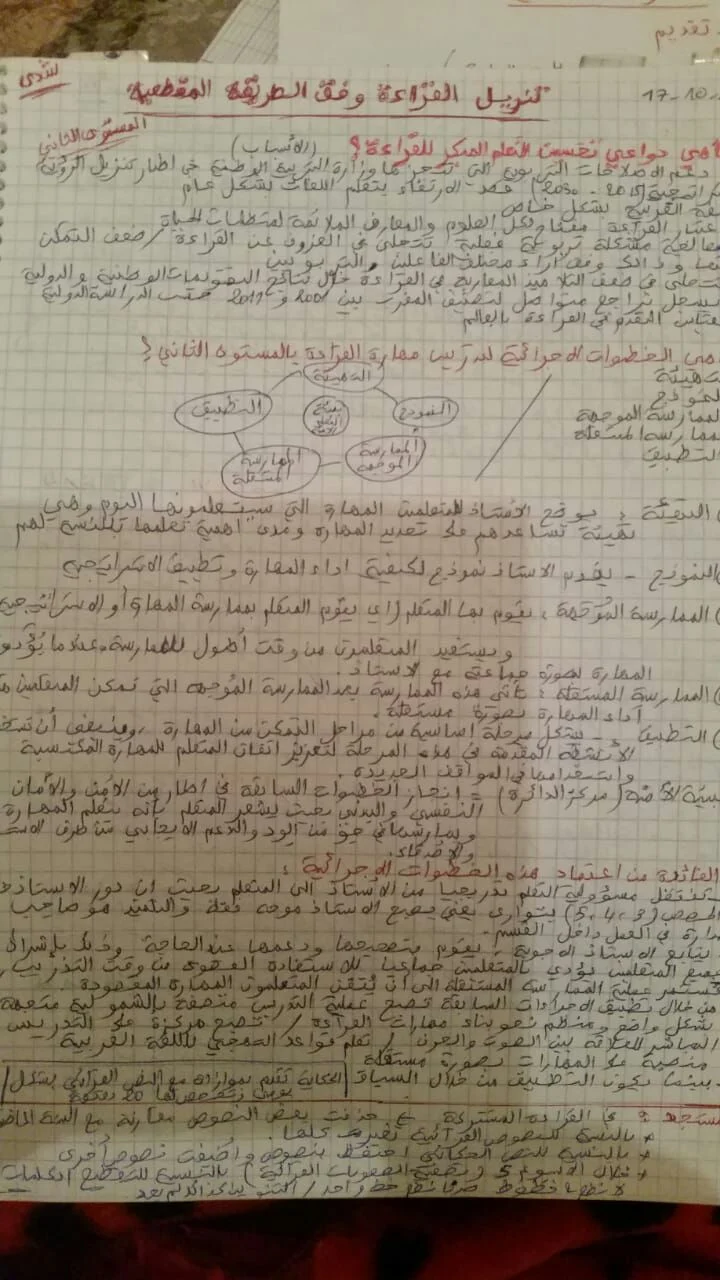 تقديم
17-10
لشدى
تنزيل القراءة وفق الطريقة المقطعية
المستوى الثاني
ماهي دواعي تحسين التعلم المبكر للقراءة؟ (الأسباب)
دعم الإصلاحات التربوية التي تنجزها وزارة التربية الوطنية في إطار تنزيل الرؤية
2015 - 2030 قصد الارتقاء بتعلم اللغات بشكل عام
العربية بشكل خاص
اعتبار القراءة مفتاح لكل العلوم والمعارف الملائمة لمتطلبات الحياة
معالجة مشكلة تربوية فعلية تتجلى في العزوف عن القراءة / ضعف التمكن
منها وذلك وفق آراء مختلف الفاعلين والتربويين
تتجلى في ضعف التلاميذ المغاربة في القراءة خلال نتائج التقويمات الوطنية والدولية
تسجل تراجع متواصل لتصنيف المغرب بين 2001 و 2011 حسب الدراسة الدولية
لقياس التقدم في القراءة بالعالم
ماهي الخطوات الإجرائية لتدريس مهارة القراءة بالمستوى الثاني؟
التهيئة
النموذج
الممارسة الموجهة
الممارسة المستقلة
التطبيق
التهيئة
النمذج
الممارسة الموجهة
الممارسة المستقلة
التطبيق
بيئة
التهيئة : يوضح الأستاذ للمتعلمين المهارة التي سيتعلمونها اليوم وهي
تهيئة تساعدهم على تحديد المهارة ومدى أهمية تعلمها بالنسبة لهم
النموذج - يقدم الأستاذ نموذج لكيفية أداء المهارة وتطبيق الاستراتيجية
الممارسة الموجهة : يقوم بها المتعلم أي يقوم المتعلم بممارسة المهارة أو الاستراتيجية
ويستفيد المتعلمون من وقت أطول للممارسة عندما يؤدون
المهارة بصورة جماعية مع الأستاذ.
الممارسة المستقلة : تأتي هذه الممارسة بعد الممارسة الموجهة التي تمكن المتعلمين من
أداء المهارة بصورة مستقلة.
التطبيق : - يشكل مرحلة أساسية من مراحل التمكن من المهارة، وينبغي أن
الأنشطة المقدمة في هذه المرحلة لتعزيز إتقان المتعلم للمهارة المكتسبة
واستخدامها في المواقف الجديدة.
(مركز الدائرة) = إنجاز الخطوات السابقة في إطار من الأمن والأمان
النفسي والبدني بحيث يشعر المتعلم بأنه يتعلم المهارة
ويمارسها في جو من الود والدعم الإيجابي من طرف
والأصدقاء.
الفائدة من اعتماد هذه الخطوات الإجرائية :
تنتقل مسؤولية التعلم تدريجيا من الأستاذ إلى المتعلم بحيث أن دور الأستاذ
الحصص (3، 4، 5) يتوارى يعني يصبح الأستاذ موجه فقط والتلميذ هو صاحب
في العمل داخل القسم.
يتابع الأستاذ الأجوبة، يقوم بتصحيحها ودعمها عند الحاجة وذلك بإشراك
جميع المتعلمين يؤدي بالمتعلمين جماعيا للاستفادة القصوى من وقت التدريب،
تستمر عملية الممارسة المستقلة إلى أن يتقن المتعلمون المهارة المقصودة.
من خلال تطبيق الإجراءات السابقة تصبح عملية التدريس متصفة بالشمولية متجهة
بشكل واضح ومنظم نحو بناء مهارات القراءة / تصبح مركزة على التدريس
المباشر للعلاقة بين الصوت والحرف / تعلم قواعد التهجي باللغة العربية
منصبة على المهارات بصورة مستقلة
بينما يكون التطبيق من خلال السياق
الحكاية تقدم بموازاة مع النص القرائي بشكل
20 دقيقة
مستجد : في القراءة المسترسلة حذفت بعض النصوص مقارنة مع السنة الماضية
* بالنسبة للنصوص القرائية تغيرت كلها.
* بالنسبة للنص الحكائي احتفظ بنصوص وأضيفت نصوص أخرى
* خلال الأسبوع 5 (تصفية الصعوبات القرائية) بالنسبة للتقطيع الكلمات